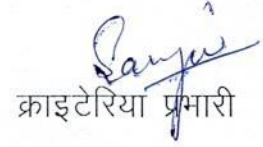 Sanjui
क्राइटेरिया प्रभारी